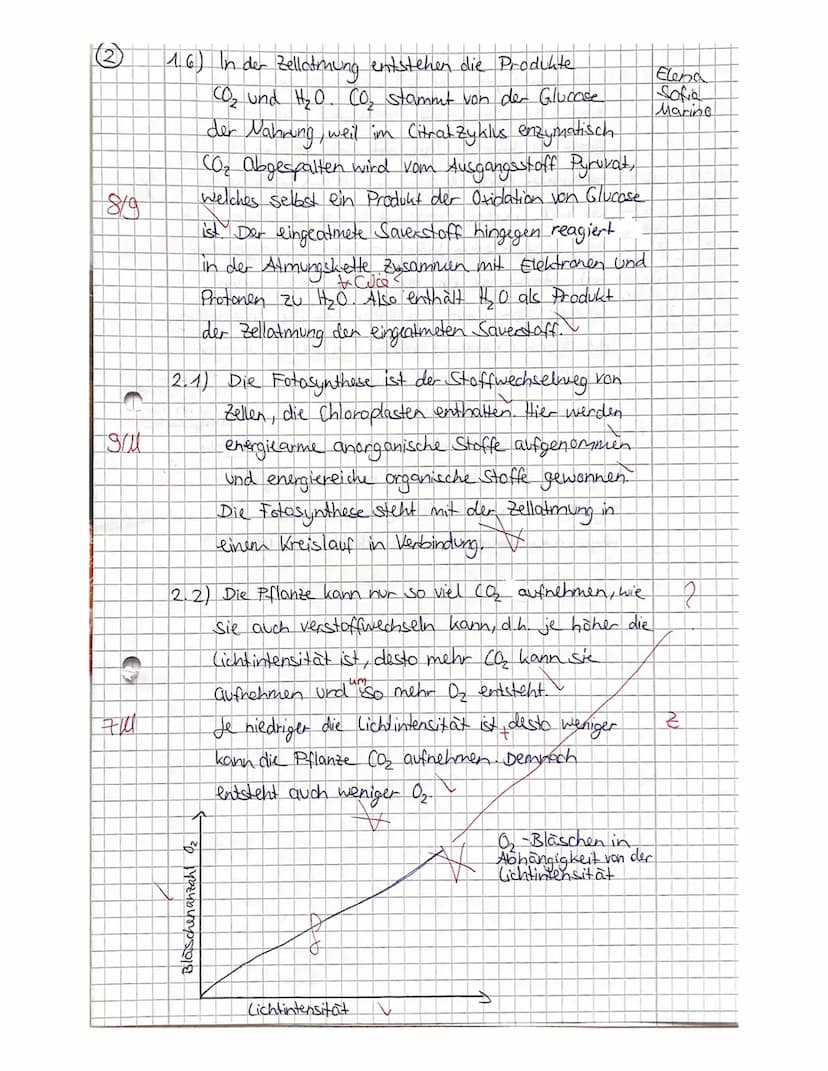 ②
1.6) In der Zellatmung entstehen die Produkte
Elena
Sofia
Marino
CO₂ und H₂O. CO₂ stammt von der Glucose
der Nahrung, weil im Citratzyklus enzymatisch
CO₂ Abgespalten wird vom Ausgangsstoff Pyruvat,
8/9
welches selbst ein Produkt der Oxidation von Glucose
ist. Der eingeatmete Sauerstoff hingegen reagiert
in der Atmungskette zusammen mit Elektronen und
Protonen zu H₂O. Also enthält H₂O als Produkt
der Zellatmung den eingeatmeten Sauerstoff.
2.1) Die Fotosynthese ist der Stoffwechselweg von
Zellen, die Chloroplasten enthalten. Hier werden
9/11
energiearme anorganische Stoffe aufgenommen
und energiereiche organische Stoffe gewonnen.
Die Fotosynthese steht mit der Zellatmung in
einem Kreislauf in Verbindung.
2.2) Die Pflanze kann nur so viel CO₂ aufnehmen, wie ?
sie auch verstoffwechseln kann, d.h. je höher die
Lichtintensität ist, desto mehr CO₂ kann sie
um
aufnehmen und so mehr O₂ entsteht.
7/11
Je niedriger die Lichtintensität ist, desto weniger Z
kann die Pflanze CO₂ aufnehmen. Demnach
entsteht auch weniger O₂.
Bläschenanzahl O₂
O₂-Bläschen in
Abhängigkeit von der
Lichtintensität
f
Lichtintensität